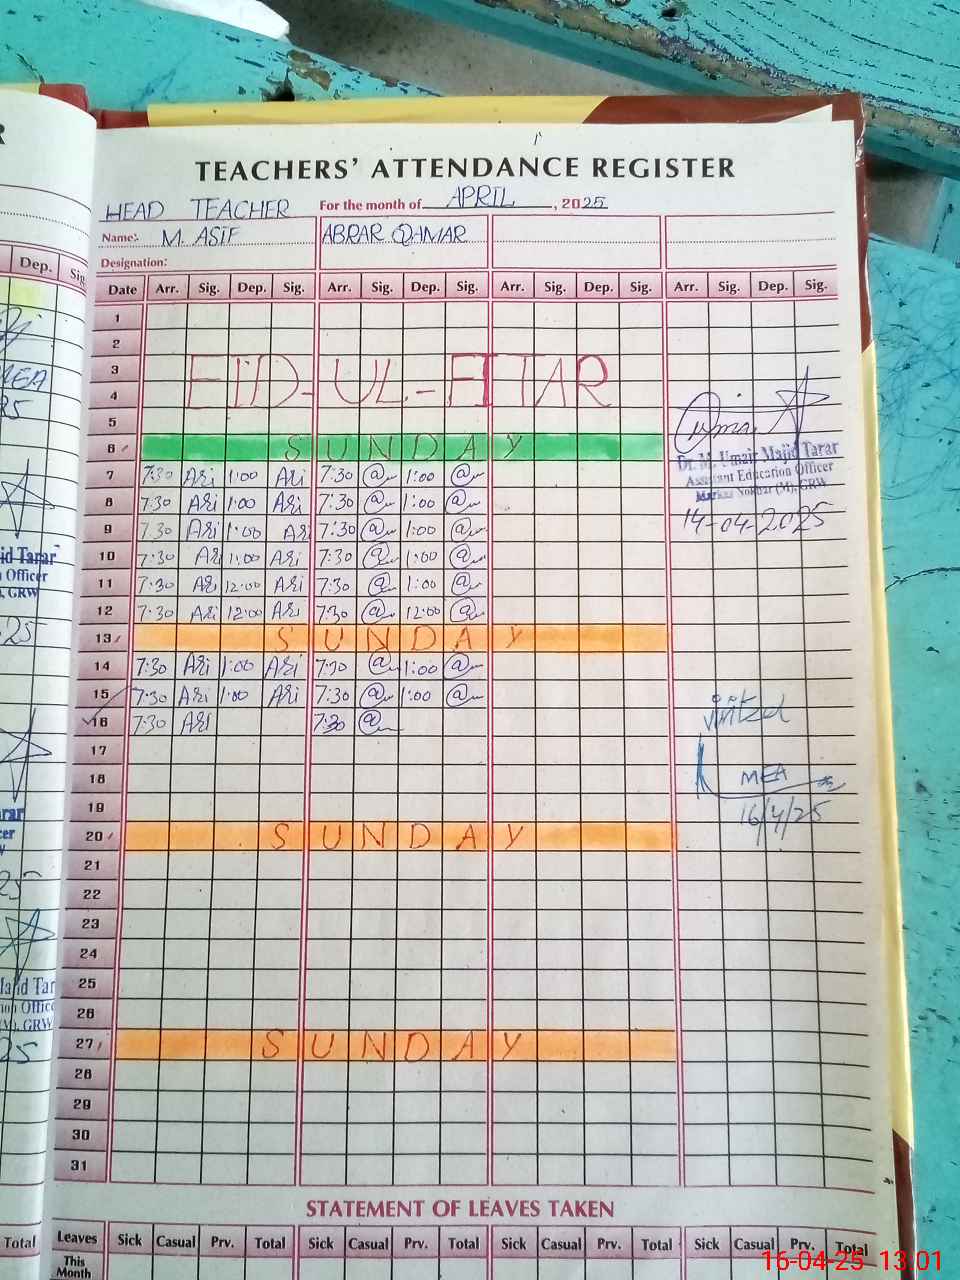 TEACHERS' ATTENDANCE REGISTER
HEAD TEACHER For the month of APRIL, 2025
Name: M. ASIF ABRAR QAMAR
Designation:
Date Arr. Sig. Dep. Sig. Arr. Sig. Dep. Sig. Arr. Sig. Dep. Sig. Arr. Sig. Dep. Sig.
1
2
3
EID-UL-FITAR
4
5
6 SUNDAY
7 7:30 1:00 7:30 1:00
8 7:30 1:00 7:30 1:00
9 7:30 1:00 7:30 1:00
10 7:30 1:00 7:30 1:00
11 7:30 12:00 7:30 1:00
12 7:30 12:00 7:30 12:00
13 SUNDAY
14 7:30 1:00 7:30 1:00
15 7:30 1:00 7:30 1:00
16 7:30 7:30
17
18
19
20 SUNDAY
21
22
23
24
25
26
27 SUNDAY
28
29
30
31
Dr. M. Umair Majid Tarar
Assistant Education Officer
Markaz Nokhar (M), GRW
14-04-2025
MEA
16/4/25
STATEMENT OF LEAVES TAKEN
Leaves Sick Casual Prv. Total Sick Casual Prv. Total Sick Casual Prv. Total Sick Casual Prv. Total
This
Month
Dep. Sig.
MEA
Total
16-04-25 13:01